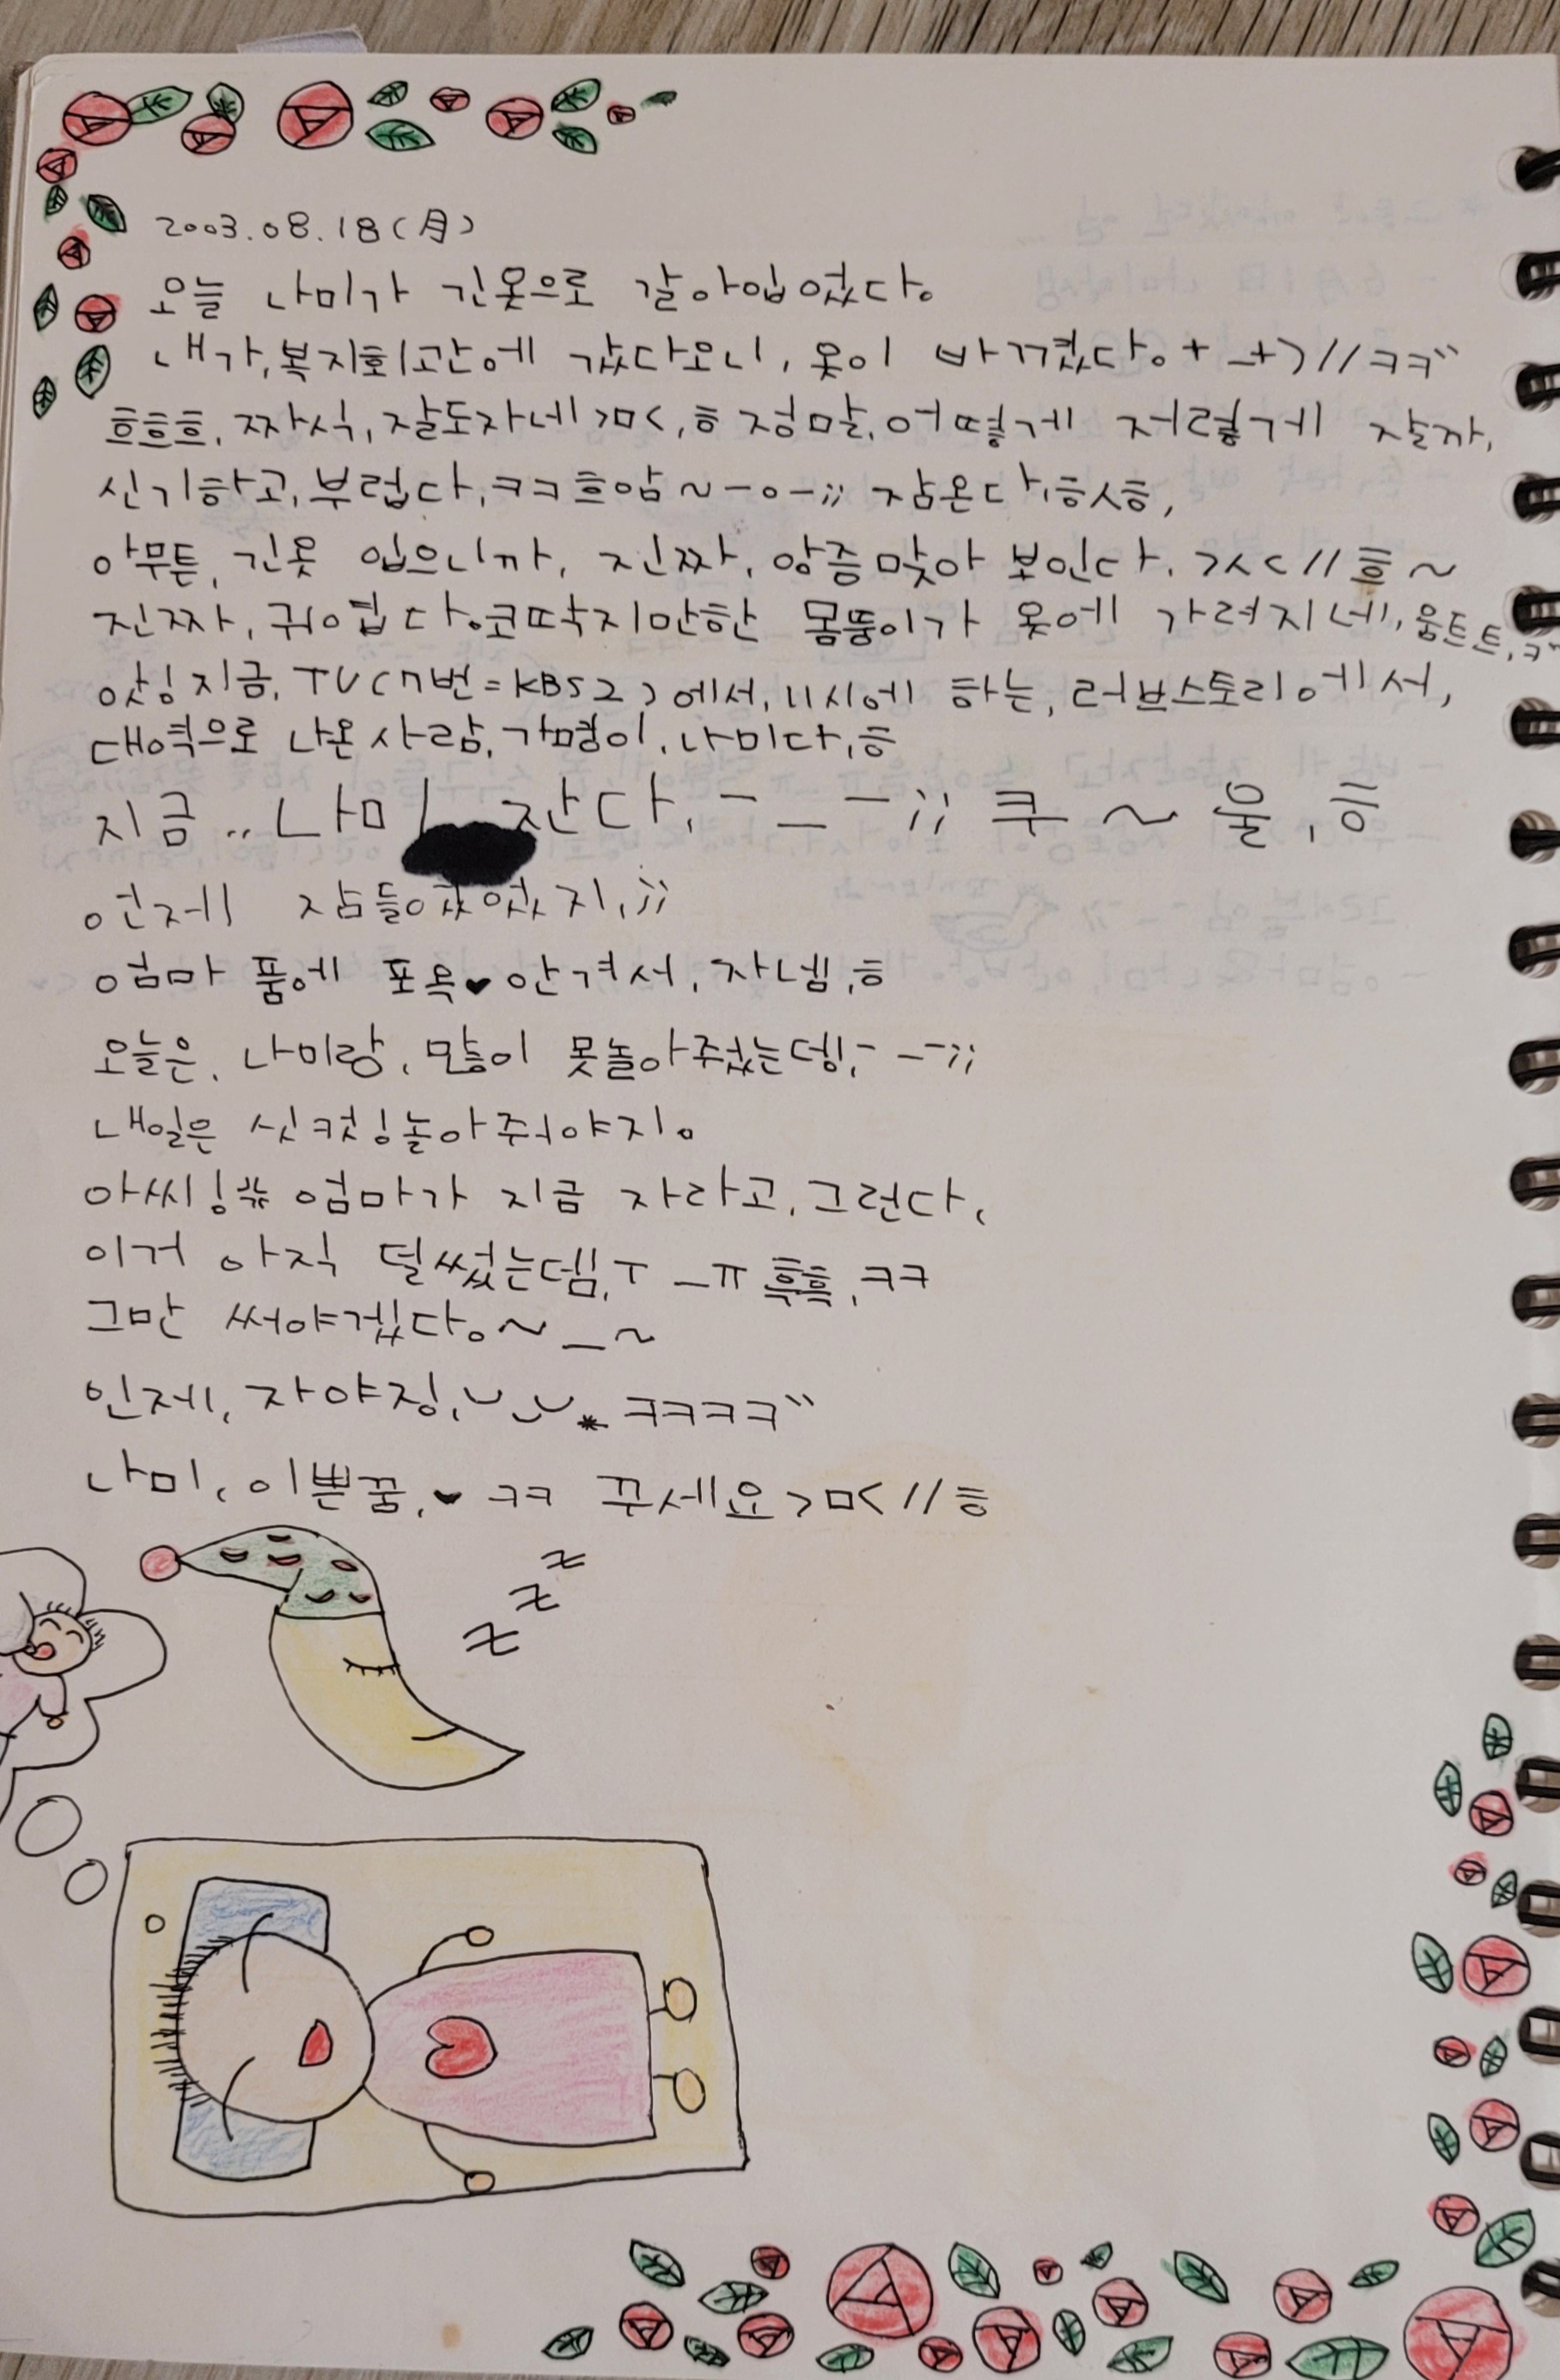 2003.08.18(月)
오늘 나미가 긴옷으로 갈아입었다。
내가,복지회관에 갔다오니, 옷이 바뀌었다。+_+)//ㅋㅋ〃
흐흐흐, 짜식, 잘도자네>ㅁ<,ㅎ 정말,어떻게 저렇게 잘까,
신기하고,부럽다,ㅋㅋ흐암~-o-;; 잠온다,ㅎㅅㅎ,
아무튼, 긴옷 입으니까, 진짜, 앙증맞아 보인다. >ㅅ<//흐~
진짜, 귀엽다。코딱지만한 몸뚱이가 옷에 가려지네, 움트트,ㅋ
앗싱지금, TV(7번=KBS2)에서, 11시에 하는, 러브스토리에서,
대역으로 나온사람, 가명이, 나미다,ㅎ
지금.. 나미 잔다, ㅡ_ㅡ;; 쿠~울,ㅎ
언제 잠들었었지,;;
엄마 품에 포옥♥안겨서, 자넴,ㅎ
오늘은, 나미랑, 많이 못놀아주었는뎅,ㅡ_ㅡ;;
내일은 실컷!놀아줘야지。
아씨! 엄마가 지금 자라고,그런다,
이거 아직 덜썼는뎀,ㅜ_ㅠ흑흑,ㅋㅋ
그만 써야겠다。~_~
인제, 자야징,◡‿◡* ㅋㅋㅋㅋ〃
나미, 이쁜꿈,♥ ㅋㅋ 꾸세요>ㅁ<//ㅎ
z z z